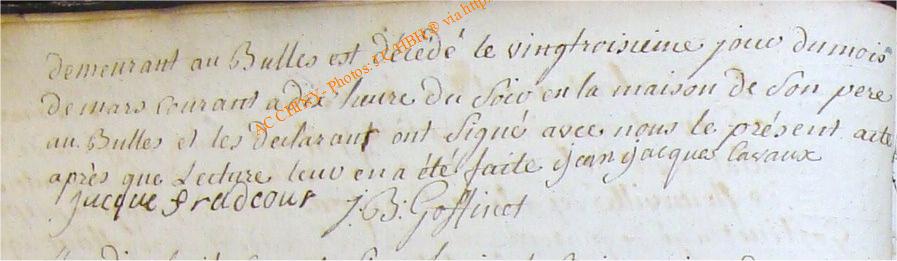 demeurant au Bulles est décédé le vingtroisieme jour du mois
de mars courant a dix heure du Soir en la maison de Son pere
au Bulles et les declarans ont Signé avec nous le présent acte
après que Lecture leur en a été faite jean jacques Lavaux
jacque fradcour J. B. Goffinet
AC CHINY - Photos: © HBH, ® via http